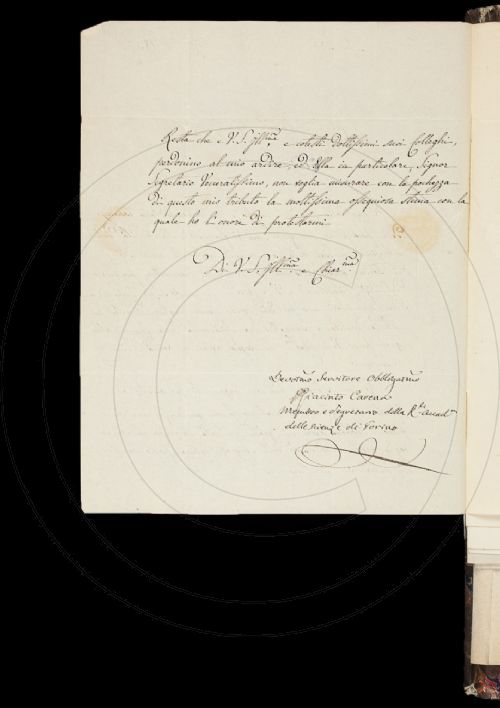 Resta che e V. S. Ill.ma, e cotesti Dottissimi suoi Colleghi,
perdonino al mio ardire, ed Ella in particolare, Signor
Segretario Veneratissimo, non voglia misurare con la pochezza
di questo mio tributo la moltissima ossequiosa stima con la
quale ho l'onore di protestarmi
Di V. S. Ill.ma e Chiar.ma
Devotmo Servitore Obbligatmo
Giacinto Carena
Membro e Segretario della R.le Accad.a
delle Scienze di Torino